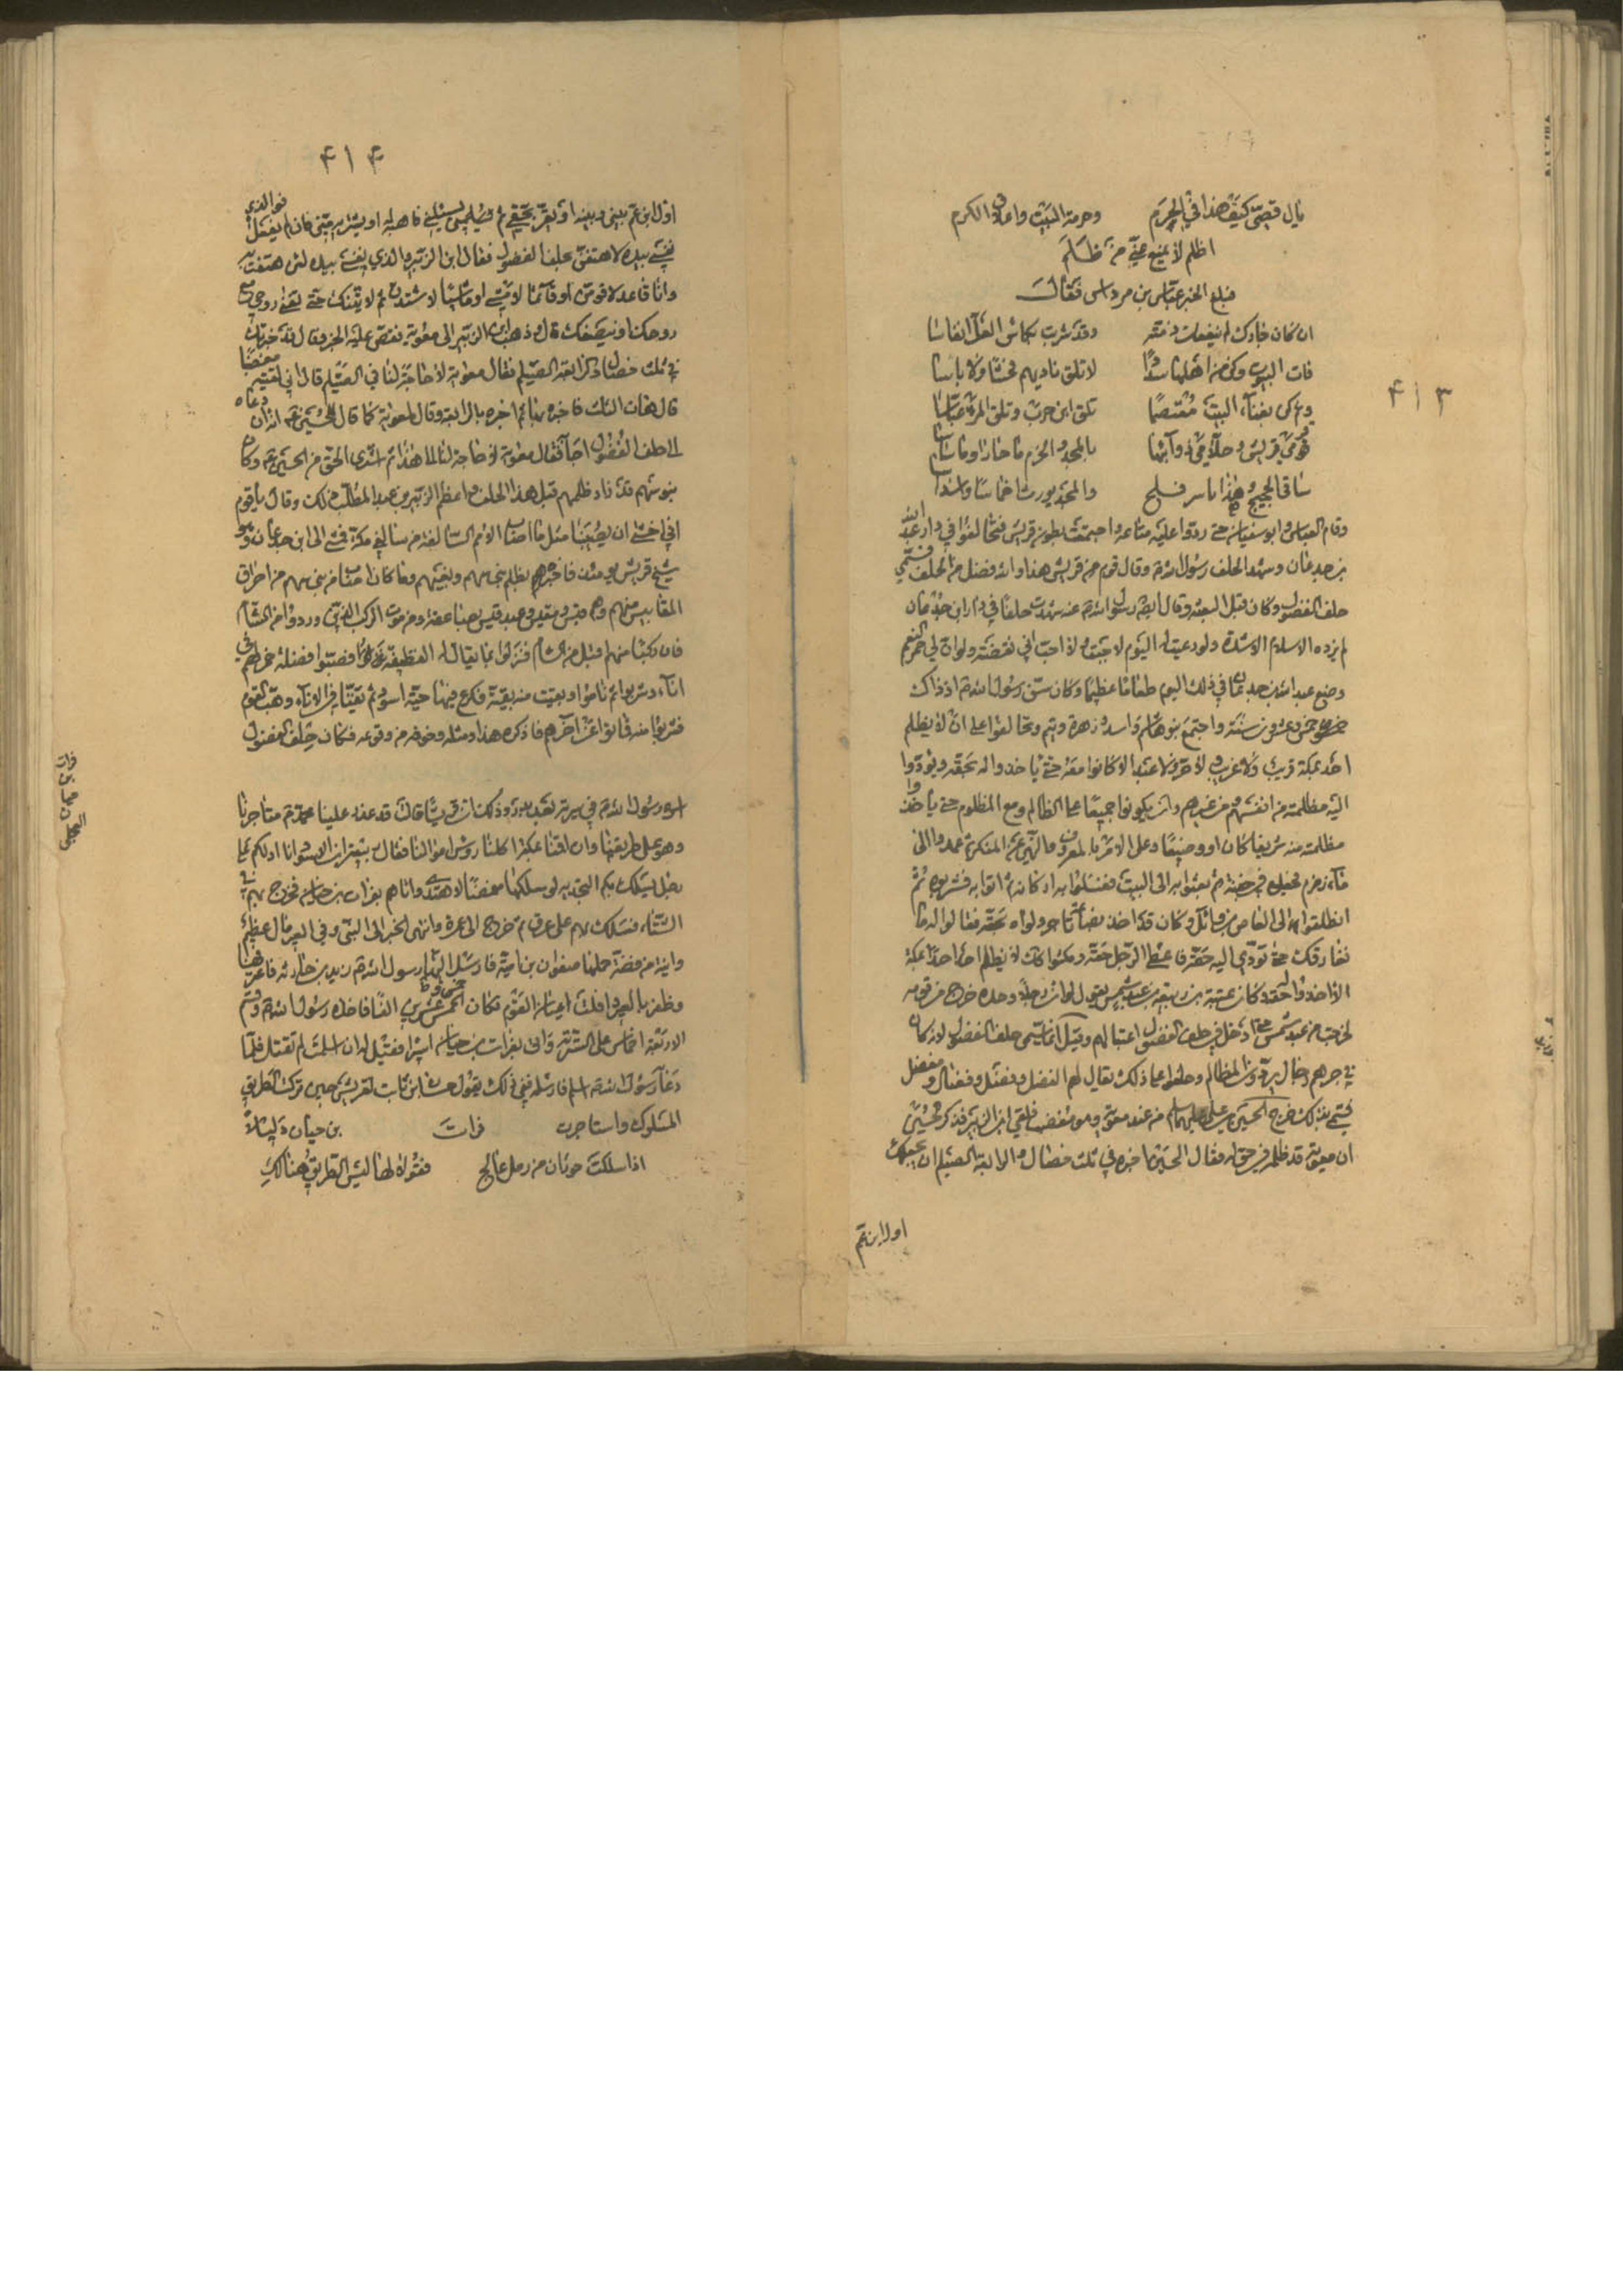 ۴۱۳
يال قصيّ كيف هذا في الحرم وحرمة البيت واعلاق الكرم
اظلم لا يمنع عنّي من ظلم
فبلغ الخبر عبّاس بن مرداس فقال
ان كان جارك لم ينفعك ذمّته وقد شربت بكاس الغلّ انفاسا
فات البيوت وكن من اهلها سددًا لا تلق ناديهم فحشًا ولا باسا
ومن يكن بفناء البيت معتصمًا تلق ابن حرب وتلق المرء عبّاسا
قومي قريش وحلّا في ذوآبتها بالمجد والحزم ما حازا وما ساسا
ساقي الحجيج وهذا ياسر فلج والمجد يورث اخماسًا واسداسا
وقام العباس وابو سفيان حتى ردّوا عليه متاعه واجتمعت بطون قريش فتحالفوا في دار عبد الله
بن جدعان وشهد الحلف رسول الله وقال قوم من قريش هذا والله فضل من الحلف فسمّي
حلف الفضول وكان قبل البعثة وقال رسول الله عنه شهدت حلفًا في دار ابن جدعان
لم يزده الاسلام الا شدة ولو دعيت له اليوم لاجبت لا احبّ اني نقضته ولو ان لي حمر النعم
وصنع عبد الله بن جدعان في ذلك اليوم طعامًا عظيمًا وكان سنّ رسول الله اذ ذاك
خمس وعشرون سنة واجتمع بنو هاشم واسد وزهرة وتيم وتحالفوا على ان لا يظلم
احد بمكة قريب ولا غريب لا حر ولا عبد الا كانوا معه حتى ياخذوا له بحقه ويؤدّوا
اليه مظلمته من انفسهم ومن غيرهم وان يكونوا جميعًا على الظالم ومع المظلوم حتى ياخذوا
مظلمته منه شريفا كان او وضيعًا وعلى الامر بالمعروف والنهي عن المنكر ثم عمدوا الى
مآء زمزم فجعلوه في جفنة ثم بعثوا به الى البيت فغسلوا به اركانه ثم اتوا به فشربوه ثم
انطلقوا الى العاص بن وائل وكان قد اخذ بضاعة تاجر ولواه بحقه فقالوا له ما
نفارقك حتى تؤدّي اليه حقّه فاعطى الرجل حقّه ومكثوا كذلك لا يظلم احد احدًا بمكة
الا اخذوا له حقه وكان عتبة بن ربيعة بن عبد شمس يقول لو ان رجلًا وحده خرج من قومه
لخرجت من عبد شمس حتى ادخل في حلف الفضول اعتبا لهم وقيل انما سمّي حلف الفضول لانه كان
في جرهم رجال يردّون المظالم وحلفوا على ذلك يقال لهم الفضل وفضيل وفضال ومفضل
فسمّي بذلك خرج الحسين بن علي عليهما السلام من عند معوية وهو مغضب فلقي ابن الزبير فذكر الحسين
ان معوية قد ظلمه في حق له فقال الحسين اخيره في ثلث خصال والرابعة الصيلم ان يجعلك
او ابن عمر
۴۱۴
او ابن عمر بيني وبينه او يقرّ بحقّي ثم يسئلني فاهبه له او يشتريه منّي فان لم يفعل فو الذي
نفسي بيده لاهتفنّ بحلف الفضول فقال ابن الزبير والذي نفسي بيده لئن هتفت به
وانا قاعد لاقومنّ او قآئمًا لامشينّ او ماشيًا لاشتدنّ ثم لا ينفك حتى تفنى روحي مع
روحك او ينصفك قال ثم ذهب ابن الزبير الى معوية فقصّ عليه الخبر وقال قد خيّرك
في ثلث خصال وذكر الرابعة الصيلم فقال معوية لا حاجة لنا في الصيلم قال اني لقيته مغضبًا
قال هات الثلث فاخبره بها ثم اخبره بالرابعة وقال لمعوية كما قال للحسين انه ان دعاه
الى حلف الفضول اجابه فقال معوية لا حاجة لنا بهذا ثم اشترى الحق من الحسين وكان
بنو سهم قد زاد ظلمهم قبل هذا الحلف واعظم الزبير بن عبد المطلب ذلك وقال يا قوم
اني اخشى ان يصيبنا مثل ما اصاب الامم السالفة من ساكني مكة فمشى الى ابن جدعان وهو
شيخ قريش يومئذ فاخبره بظلم بني سهم وبغيهم وما كان اصاب من بني سهم من احراق
المقاييس منهم وهم قيس ومقيس وعبد قيس بصاعقة ومن موت الركب الذين وردوا من الشام
فان ركبًا منهم اقبل من الشام فنزلوا بماء يقال له القطيفة فصبّوا فضلة خمر لهم في
انآء وشربوا ثم ناموا وبقيت منه بقيّة فكرع فيها حيّة اسود ثم تقيّا في الانآء وهبّ القوم
فشربوا منه فماتوا عن آخرهم فاذكره هذا ومثله وخوفه من وقوعه فكان حلف الفضول
اسره رسول الله في سرية بعد بدر وذكر ان قريشًا قالت قد عدّ علينا محمد متاجرنا
وهو على طريقنا وان اقمنا بمكة اكلنا رؤس اموالنا فقال الاسود انا ادلكم على
رجل يسلك بكم النجدية لو سلكها مغمضًا لاهتدى واتاهم بفرات بن حيان فخرج بهم في
الشتاء فسلك بهم على ذات عرق ثم خرج الى غمرة وانتهى الخبر الى النبي وفي العير مال عظيم
وانية من فضة حملها صفوان بن امية فارسل رسول الله زيد بن حارثة فاعترضها
وظفر بالعير وافلت اعيان القوم فكان الخمس عشرين الفًا فاخذه رسول الله وقسم
الاربعة اخماس على السرية واتى بفرات بن حيان اسيرا فقيل له ان اسلمت لم تقتل فلمّا
دعآه رسول الله اسلم فارسله ففي ذلك يقول حسان بن ثابت لقريش حين تركت الطريق
المسلوك واستاجرت فرات بن حيان دليلًا
اذا سلكت حوران من رمل عالج فقولا لها ليس الطريق هنالك
فرات بن حيان العجلي